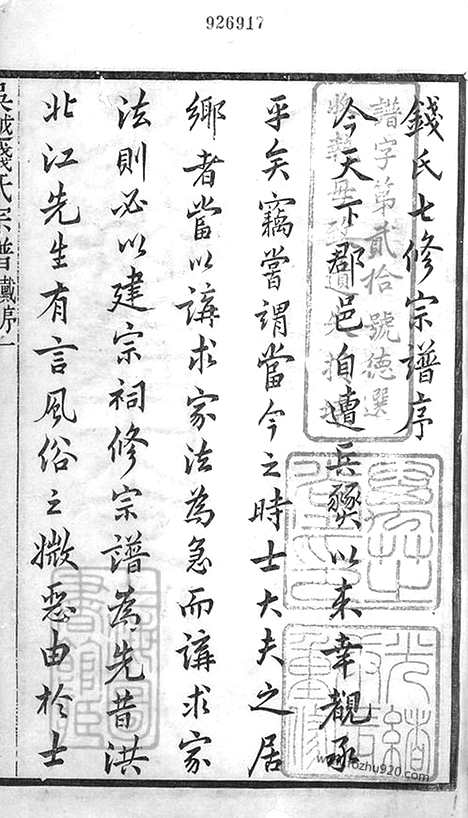 926917
錢氏七修宗譜序
今天下郡邑自遭兵燹以来幸觀承
平矣竊嘗謂當今之時士大夫之居
鄉者當以講求家法為急而講求家
法則必以建宗祠修宗譜為先昔洪
北江先生有言風俗之媺惡由於士
吳越錢氏宗譜 序 一
譜字第貳拾號德選
光緒
www.fozhu920.com